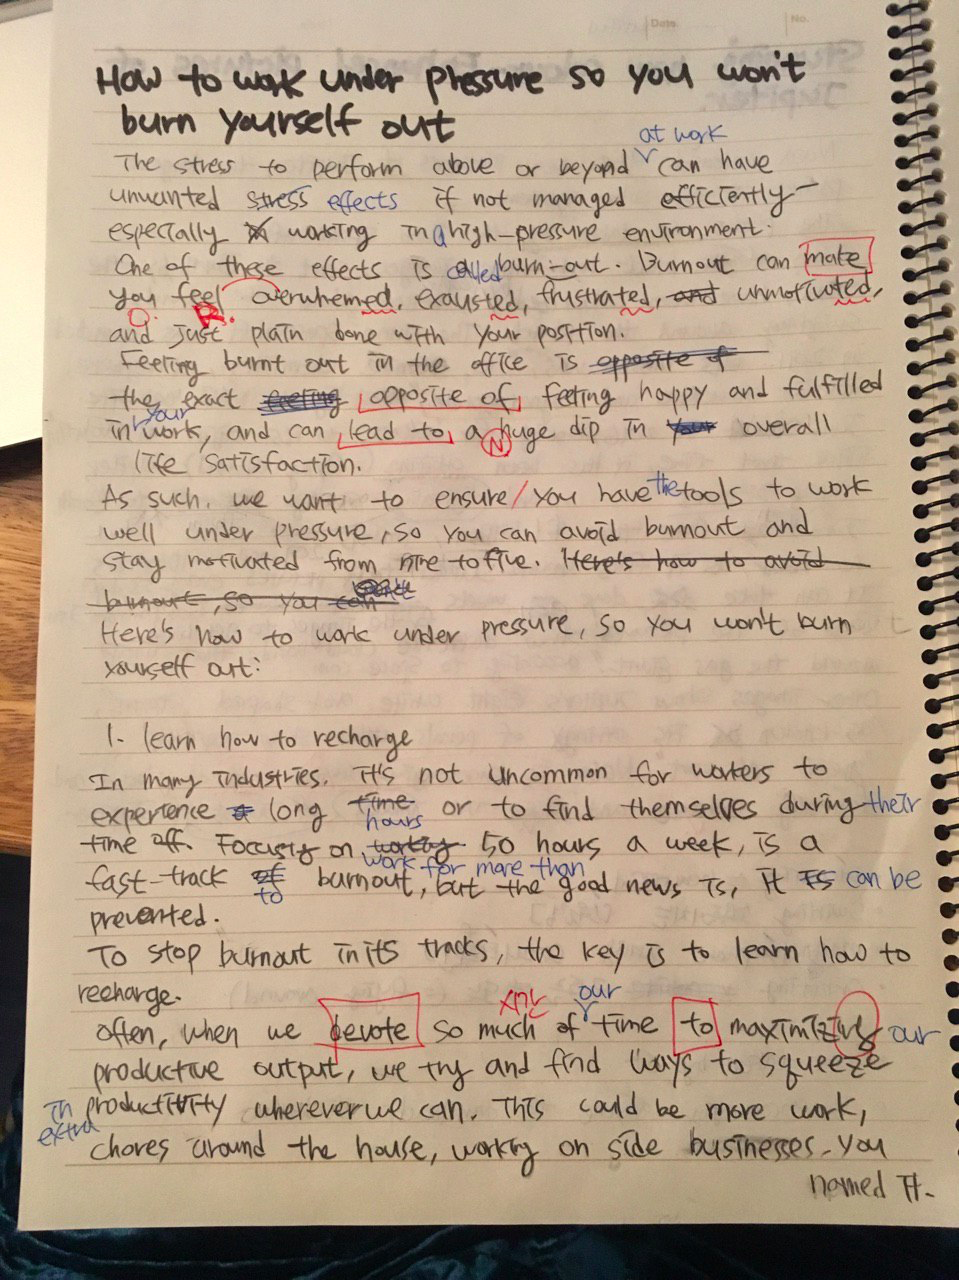 How to work under pressure so you won't
burn yourself out
at work
The stress to perform above or beyond can have
unwanted stress effects if not managed efficiently-
especially working in a high-pressure environment.
One of these effects is called burn-out. Burnout can make
you feel overwhemed, exausted, frustrated, and unmotivated,
O. R.
and just plain done with your position.
Feeling burnt out in the office is opposite of
the exact feeling opposite of feeling happy and fulfilled
in your work, and can lead to a huge dip in your overall
N
life satisfaction.
As such, we want to ensure / you have the tools to work
well under pressure, so you can avoid burnout and
stay motivated from nine to five. Here's how to avoid
burnout, so you can
Here's how to work under pressure, so you won't burn
yourself out:
1- learn how to recharge
In many industries, it's not uncommon for workers to
experience long time or to find themselves during their
hours
time off. Focusing on working 50 hours a week, is a
work for more than
fast-track of burnout, but the good news is, it is can be
to
prevented.
To stop burnout in its tracks, the key is to learn how to
recharge.
our
often, when we devote so much of time to maximizing our
productive output, we try and find ways to squeeze
in extra productivity wherever we can. This could be more work,
chores around the house, working on side businesses- you
named it.